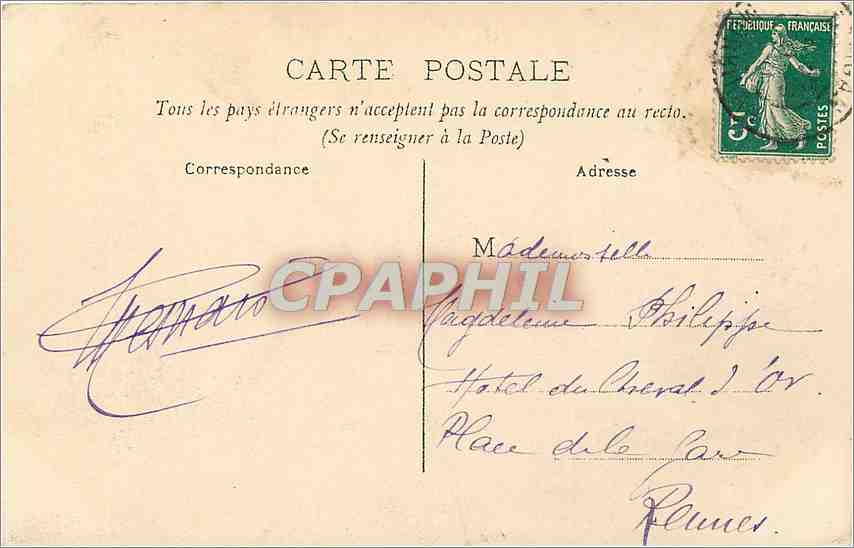 RÉPUBLIQUE FRANÇAISE
5c
POSTES
CARTE POSTALE
Tous les pays étrangers n'acceptent pas la correspondance au recto.
(Se renseigner à la Poste)
Correspondance
Adresse
Mademoiselle
CPAPHIL
Magdeleine Philippe
Hotel du Cheval d'Or.
Place de la Gare
Rennes.